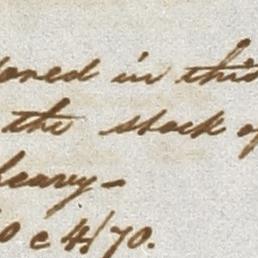 in this
the stock of
heavy -
0 c 4/70.